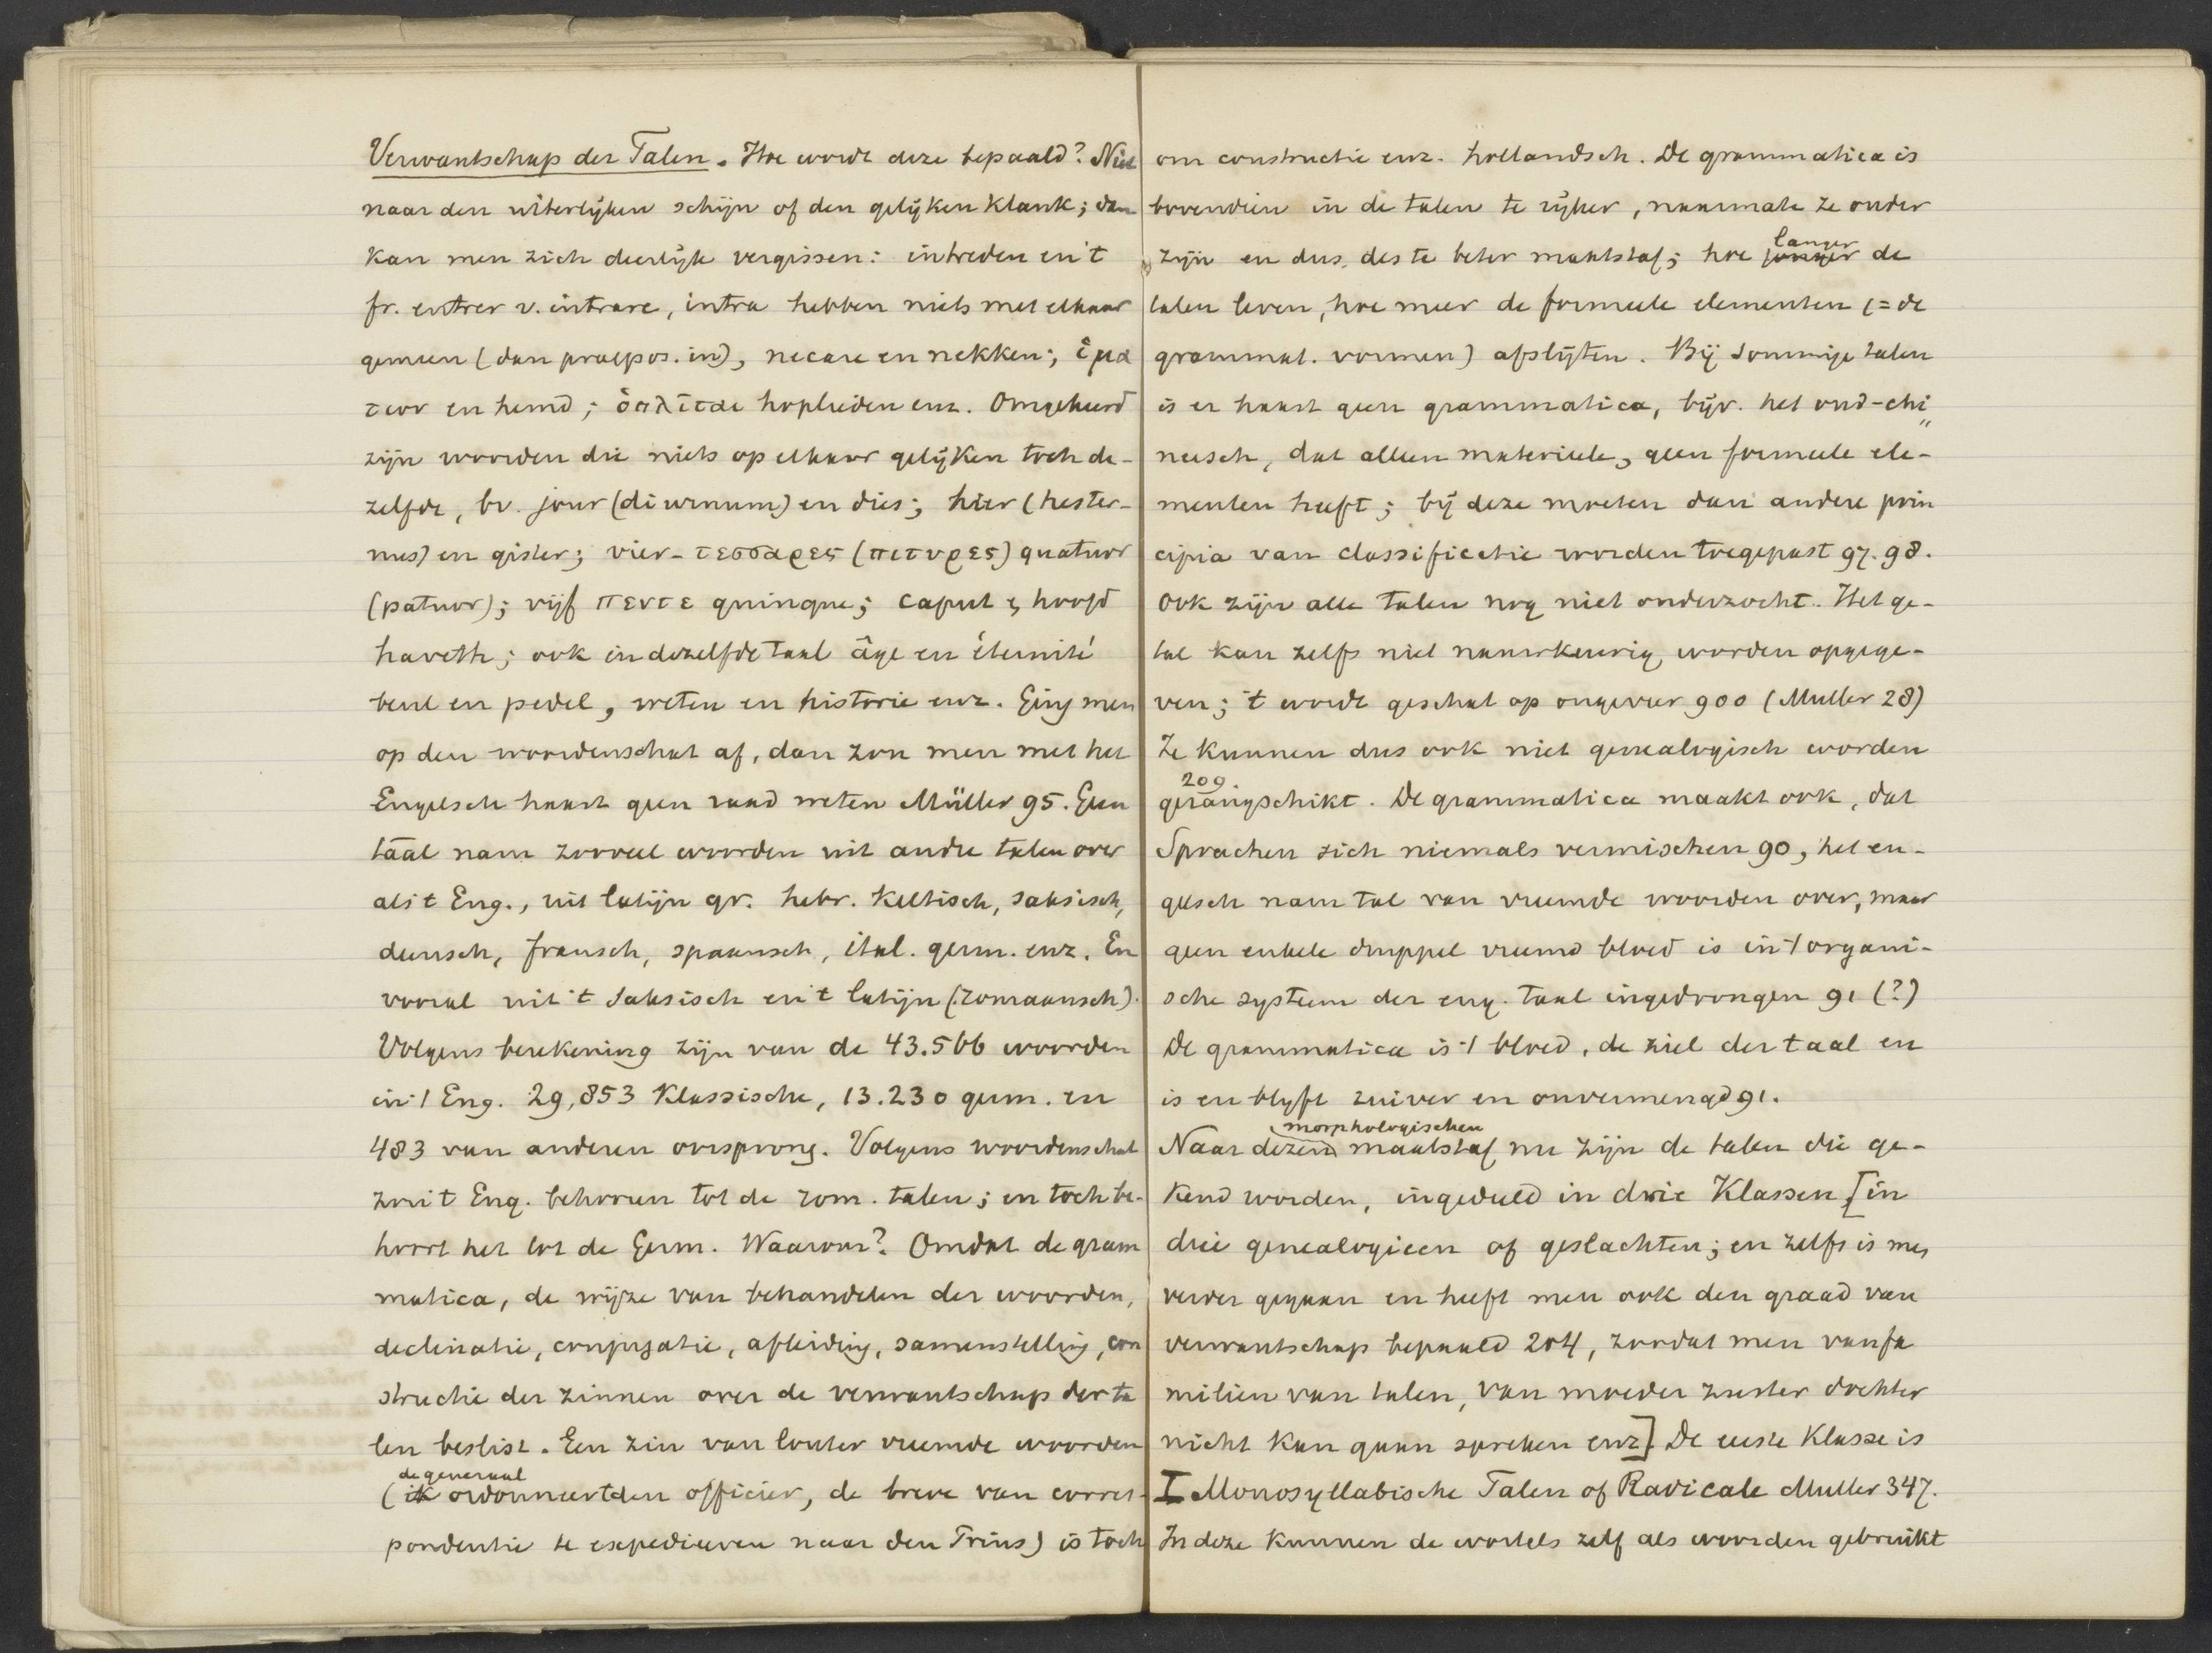 Verwantschap der Talen. Hoe wordt deze bepaald? Niet
naar den uiterlijken schijn of den gelijken klank; dan
kan men zich deerlijk vergissen: intreden en 't
fr. entrer v. intrare, intra hebben niets met elkaar
gemeen (dan praepos. in), necare en nekken; εἱμα
των en hemd; ὁπλῖται hoplieden enz. Omgekeerd
zijn woorden die niets op elkaar gelijken toch de-
zelfde, bv. jour (diurnum) en dies; hier (hester-
nus) en gister; vier - τεσσαρες (πετυρες) quatuor
(patuor); vijf πεντε quinque; caput & hoofd
haveth; ook in dezelfde taal âge en éternité
beul en pedel, weten en historie enz. Ging men
op den woordenschat af, dan zou men met het
Engelsch haast geen raad weten Müller 95. Geen
taal nam zooveel woorden uit andre talen over
als 't Eng., uit latijn gr. hebr. Keltisch, saksisch,
deensch, fransch, spaansch, ital. germ. enz. En
vooral uit 't Saksisch en 't latijn (romaansch).
Volgens berekening zijn van de 43.566 woorden
in 't Eng. 29,853 Klassische, 13.230 germ. en
483 van anderen oorsprong. Volgens woordenschat
zou 't Eng. behooren tot de rom. talen; en toch be-
hoort het tot de Germ. Waarom? Omdat de gram
matica, de wijze van behandelen der woorden,
declinatie, conjugatie, afleiding, samenstelling, con
structie der zinnen over de verwantschap der ta
len beslist. Een zin van louter vreemde woorden
de generaal
(ik ordonneert den officier, de breve van corres-
pondentie te expedieeren naar den Prins) is toch
om constructie enz. hollandsch. De grammatica is
bovendien in de talen te rijker, naarmate ze ouder
langer
zijn en dus des te beter maatstaf; hoe jonger de
talen leven, hoe meer de formeele elementen (= de
grammat. vormen) afslijten. Bij sommige talen
is er haast geen grammatica, bijv. het oud-chi
neesch, dat alleen materieele, geen formeele ele-
menten heeft; bij deze moeten dan andere prin
cipia van classificatie worden toegepast 97. 98.
Ook zijn alle talen nog niet onderzocht. Het ge-
tal kan zelfs niet naauwkeurig worden opgege-
ven; 't wordt geschat op ongeveer 900 (Muller 28)
Ze kunnen dus ook niet genealogisch worden
209
gerangschikt. De grammatica maakt ook, dat
Sprachen sich niemals vermischen 90, het en-
gelsch nam tal van vreemde woorden over, maar
geen enkele druppel vreemd bloed is in 't organi-
sche systeem der eng. taal ingedrongen 91 (?)
De grammatica is 't bloed, de ziel der taal en
is en blijft zuiver en onvermengd 91.
morphologischen
Naar dezen maatstaf nu zijn de talen die ge-
kend worden, ingedeeld in drie Klassen [in
drie genealogieen of geslachten; en zelfs is men
verder gegaan en heeft men ook den graad van
verwantschap bepaald 204, zoodat men van fa
miliën van talen, van moeder zuster dochter
nicht kan gaan spreken enz] De eerste Klasse is
I Monosyllabische Talen of Radicale Muller 347.
In deze kunnen de wortels zelf als woorden gebruikt